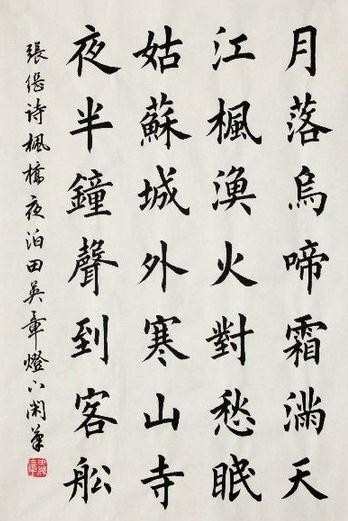 月落烏啼霜滿天
江楓漁火對愁眠
姑蘇城外寒山寺
夜半鐘聲到客船
張继诗楓橋夜泊田英章燈下閑筆